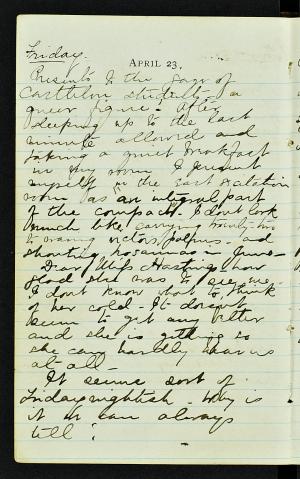 Friday.
APRIL 23.
Presents to the gaze of
Castleton students a
queer figure - After
sleeping up to the last
minute allowed and
taking a quiet breakfast
in my room I present
myself in the east recitation
room as an integral part
of the compact. I don't look
much like carrying
to waving victors, palms - and
shouting hosannas in June -
Dear Miss Hastings how
glad she was to see me -
I don't know what to think
of her cold. It doesn't
seem to get any better
and she is getting so
she can hardly hear us
at all -
It seems sort of
Fridaynightish. Why is
it we can always
tell?